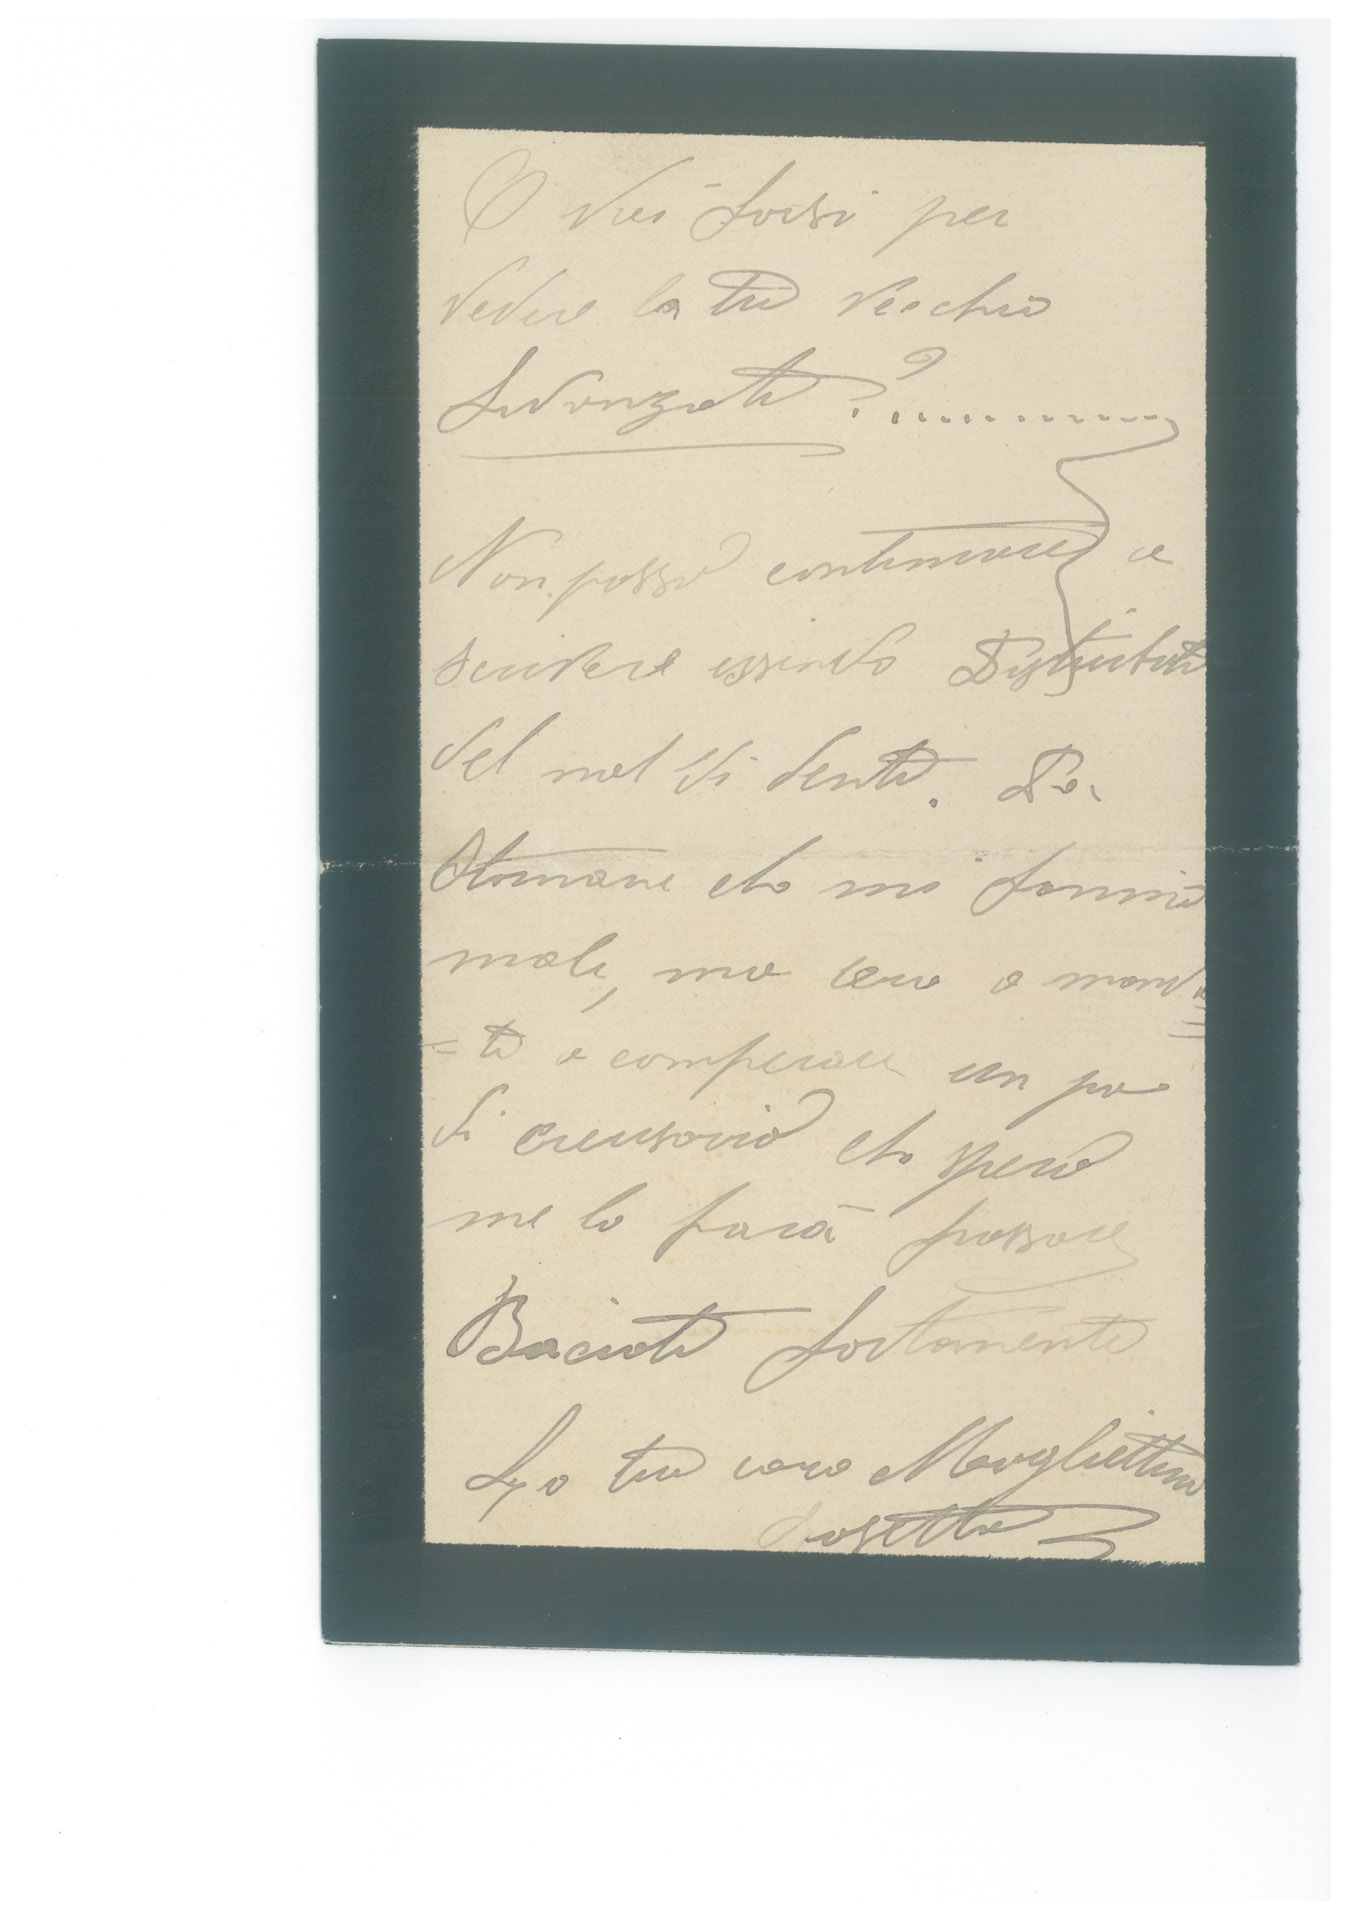 O vai forsi per
vedere la tua vecchia
fidanzata ? ..............
Non posso continuare a
scrivere essendo Disturbata
del mal di denti. Da
Otomane che mi fanno
male, ma ora o manda
= to a comperare un po
di creusovio che spero
me lo farà passare
Baciati fortamente
La tua cara Mogliettina
Rosetta